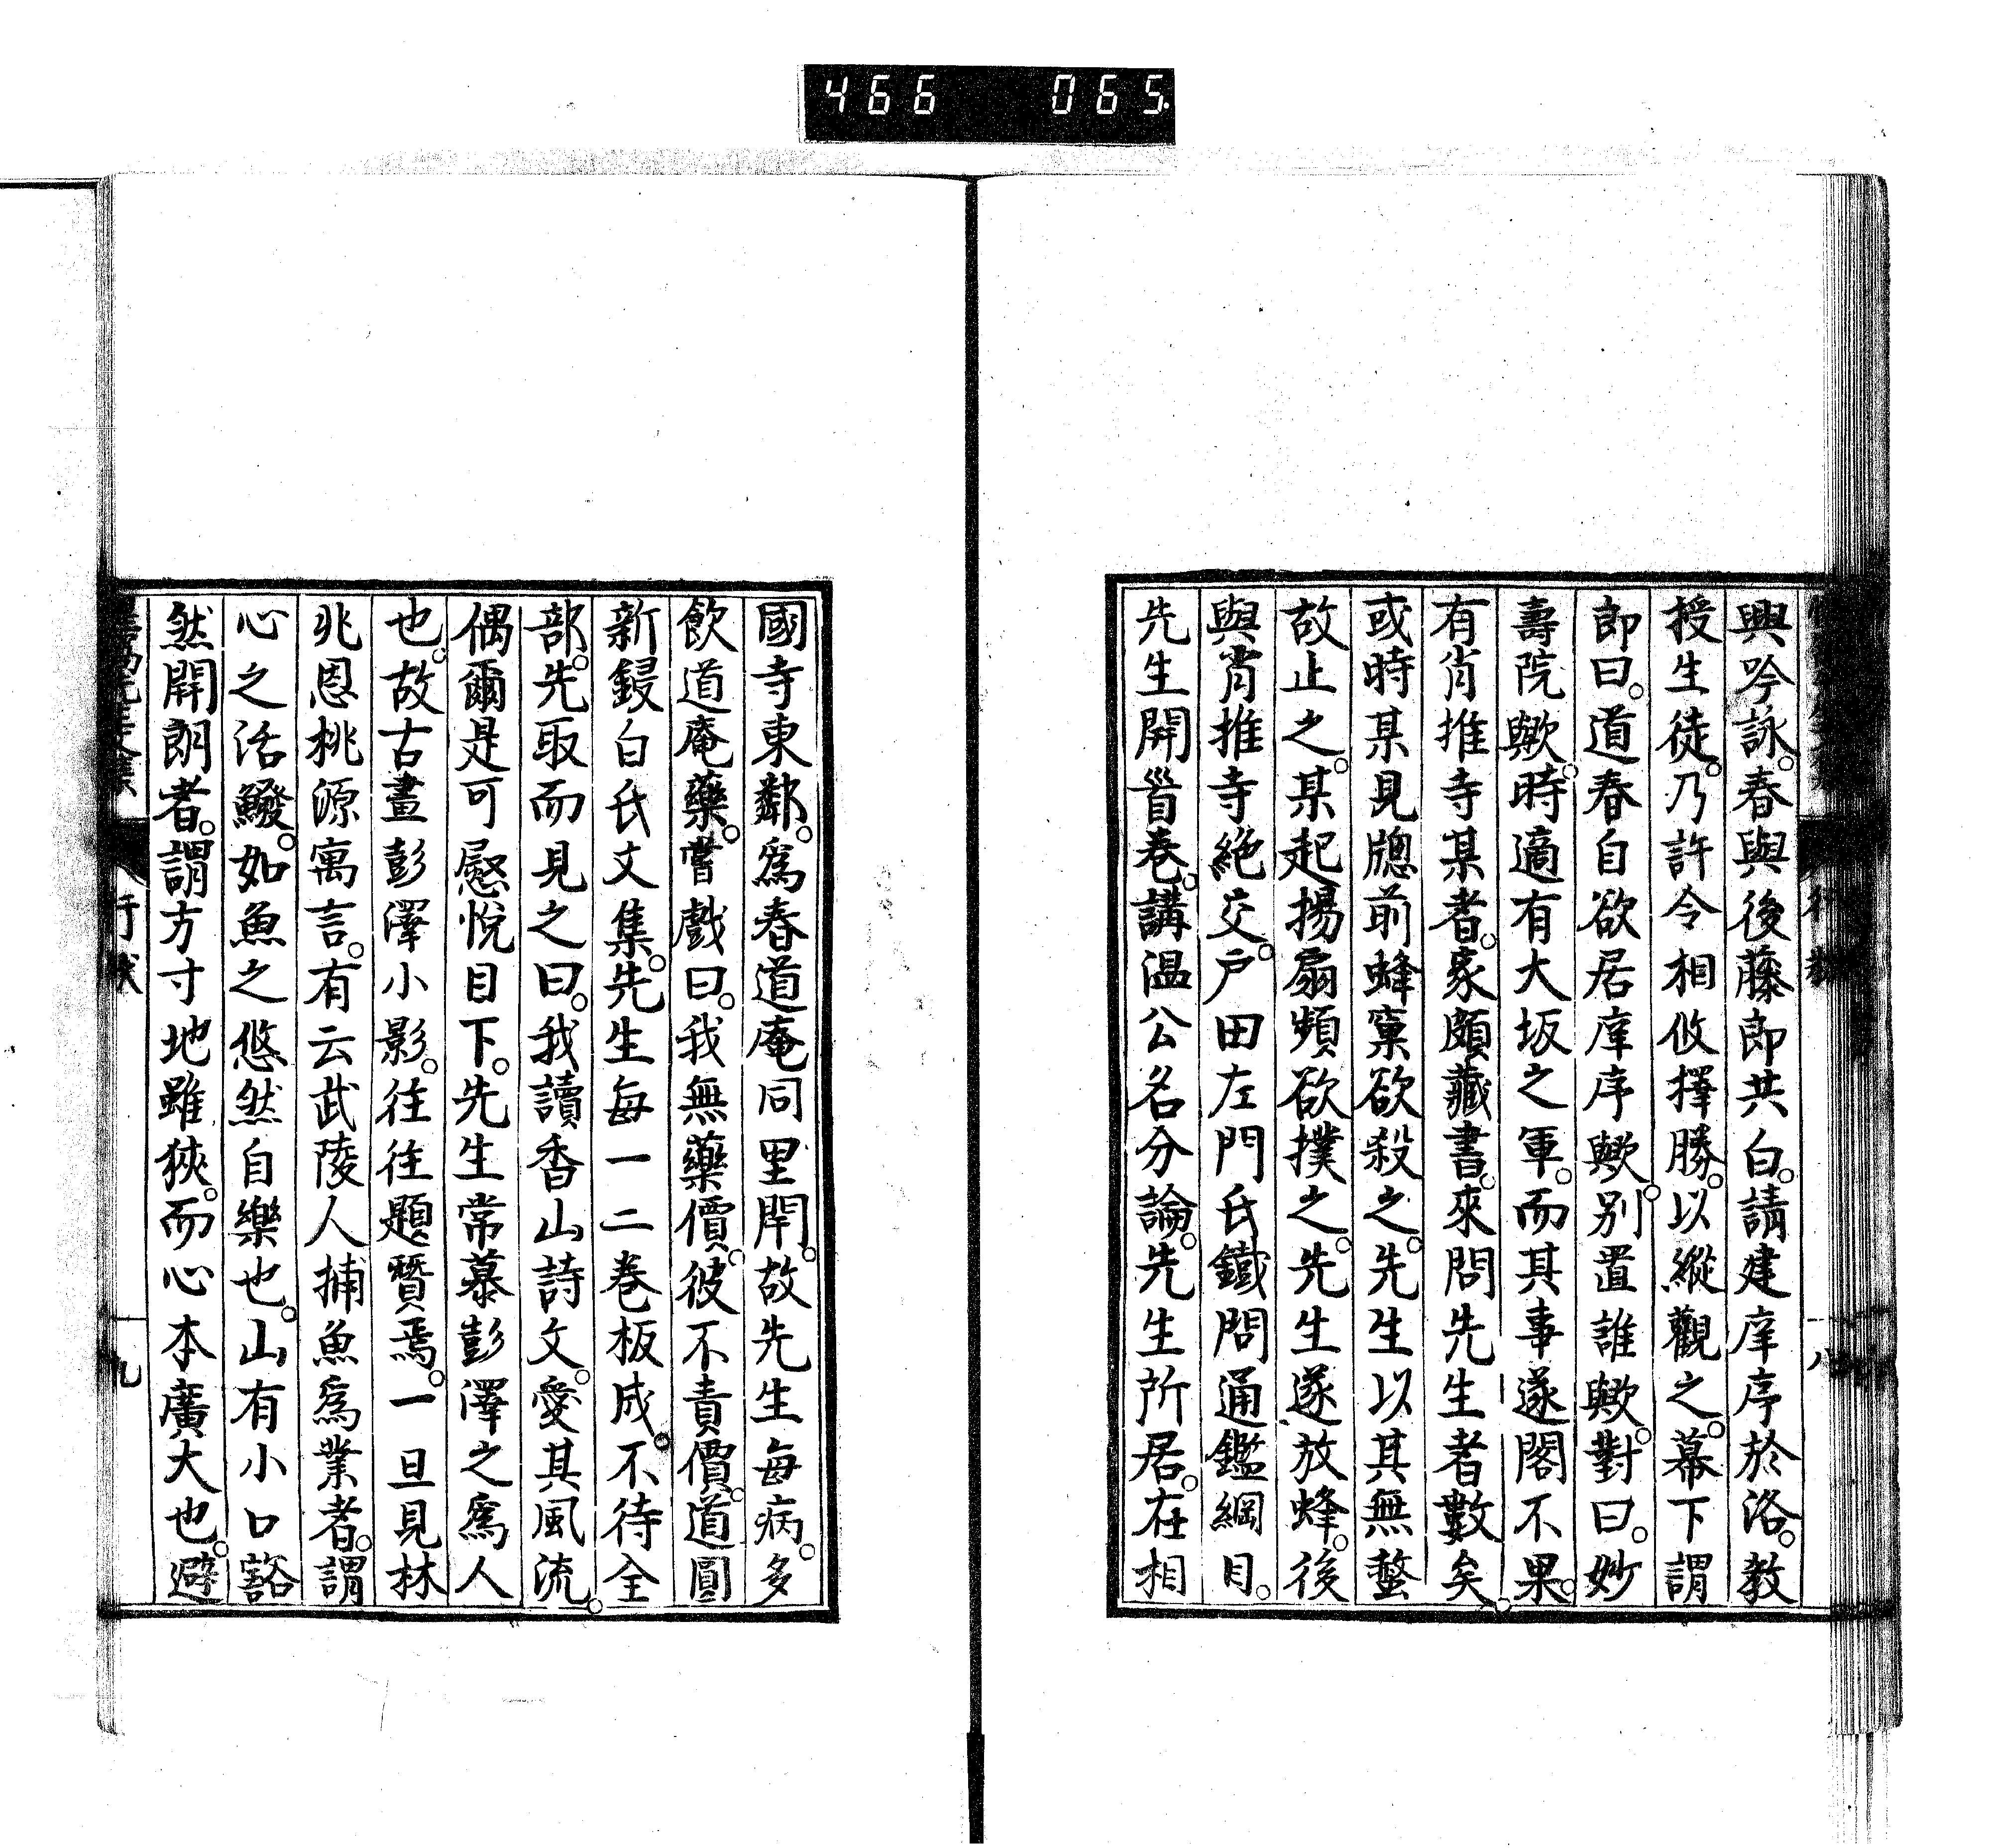 466 065
興吟詠。春與後藤即共白。請建庠序於洛。教
授生徒。乃許令相攸擇勝。以縱觀之。幕下謂
即曰。道春自欲居庠序歟。別置誰歟。對曰。妙
壽院歟。時適有大坂之軍。而其事遂閣不果。
有肖推寺某者。家頗藏書。來問先生者數矣。
或時某見牕前蜂窠欲殺之。先生以其無螫
故止之。某起揚扇頻欲撲之。先生遂放蜂。後
與肖推寺絶交。戶田左門氏鐵問通鑑綱目。
先生開首卷。講温公名分論。先生所居。在相
八
國寺東鄰。爲春道庵同里閈。故先生每病。多
飲道庵藥。嘗戲曰。我無藥價。彼不責價。道圓
新鋟白氏文集。先生每一二卷板成。不待全
部。先取而見之曰。我讀香山詩文。愛其風流。
偶爾是可慰悅目下。先生常慕彭澤之爲人
也。故古畫彭澤小影。往往題贊焉。一旦見林
兆恩桃源寓言。有云武陵人捕魚爲業者。謂
心之活鱍。如魚之悠然自樂也。山有小口豁
然開朗者。謂方寸地雖狹。而心本廣大也。避
行狀
九